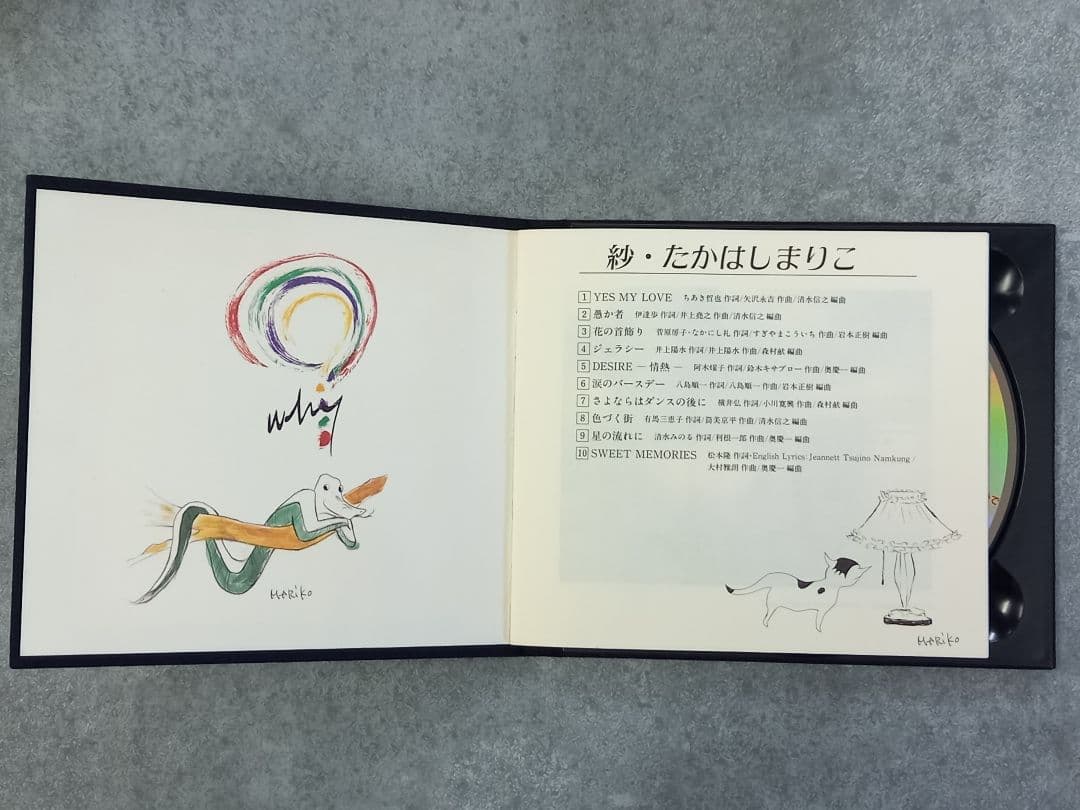 why
MARiKO
紗・たかはしまりこ
1 YES MY LOVE ちあき哲也 作詞/矢沢永吉 作曲/清水信之 編曲
2 愚か者 伊達歩 作詞/井上堯之 作曲/清水信之 編曲
3 花の首飾り 菅原房子・なかにし礼 作詞/すぎやまこういち 作曲/岩本正樹 編曲
4 ジェラシー 井上陽水 作詞/井上陽水 作曲/森村献 編曲
5 DESIRE ― 情熱 ― 阿木燿子 作詞/鈴木キサブロー 作曲/奥慶一 編曲
6 涙のバースデー 八島順一 作詞/八島順一 作曲/岩本正樹 編曲
7 さよならはダンスの後に 横井弘 作詞/小川寛興 作曲/森村献 編曲
8 色づく街 有馬三恵子 作詞/筒美京平 作曲/清水信之 編曲
9 星の流れに 清水みのる 作詞/利根一郎 作曲/奥慶一 編曲
10 SWEET MEMORIES 松本隆 作詞・English Lyrics: Jeannett Tsujino Namkung/
大村雅朗 作曲/奥慶一 編曲
MARiKO